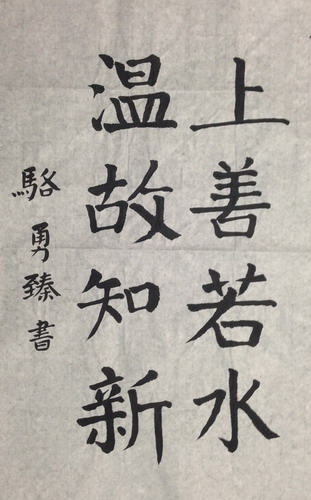 上善若水
温故知新
駱勇臻書